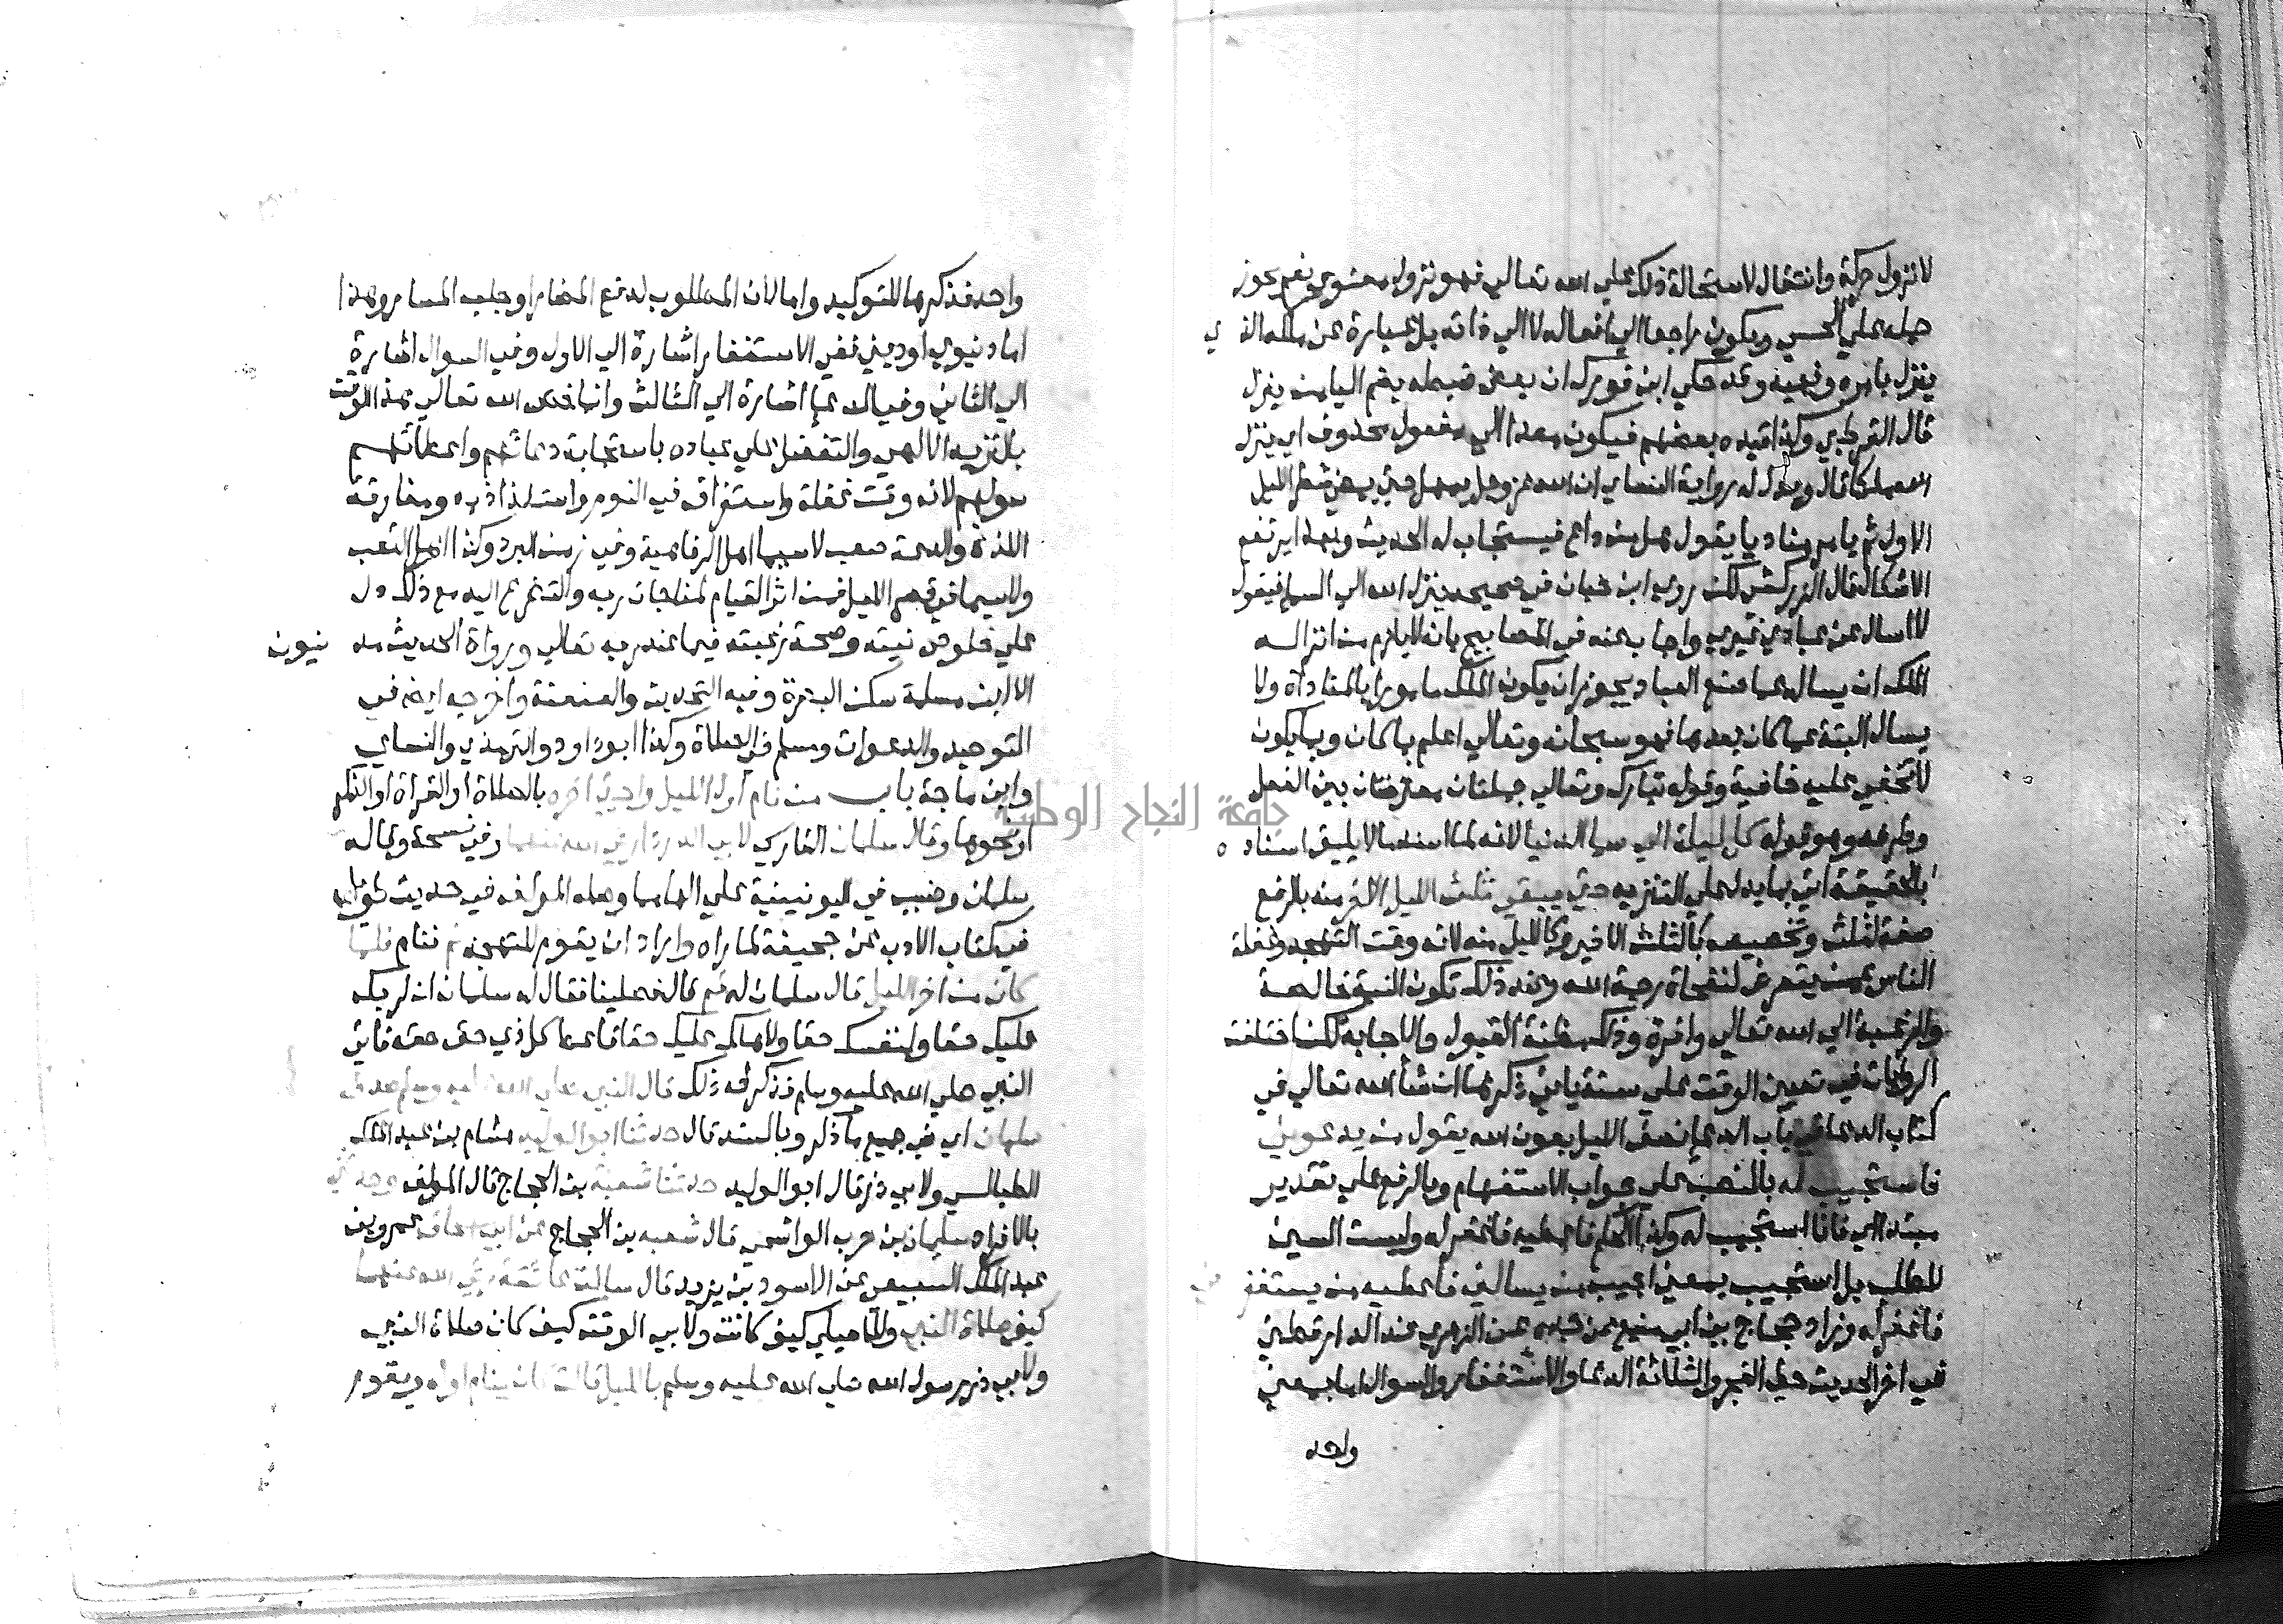 لا نزول حركة وانتقال لاستحالة ذلك على الله تعالي فهو نزول معنوي نعم يجوز
حمله علي الحسي ويكون راجعا الي افعاله لا الي ذاته بل عبارة عن ملكه الذي
ينزل بامره ونهيه وقد حكي ابن فورك ان بعض ضبطه بضم اليا من ينزل
قال القرطبي وكذا قيده بعضهم فيكون معدا الي مفعول محذوف اي ينزل
الله ملكا قال ويدل له رواية النساي ان الله عز وجل يمهل حتي يمضي شطر الليل
الاول ثم يامر مناديا يقول هل من داع فيستجاب له الحديث وبهذا يرتفع
الاشكال قال الزركشي لكن روي ابن حبان في صحيحه ينزل الله الي السما فيقول
لا اسال عن عبادي غيري واجاب عنه في المصابيح بانه لا يلزم من انزاله
الملك ان يساله عما صنع العباد يجوز ان يكون الملك مامورا بالمناداة ولا
يسال البتة عما كان بعدها فهو سبحانه وتعالي اعلم بما كان وبما يكون
لا تخفي عليه خافية وقوله تبارك وتعالي جملتان معترضتان بين الفعل
وظرفه وهو قوله كل ليلة الي سما الدنيا لانه لما اسند ما لا يليق اسناده
بالحقيقة اتي بما يدل علي التنزيه حتي يبقي ثلث الليل الاخر منه بالرفع
صفة لثلث وتخصيصه بالثلث الاخير من الليل منه لانه وقت التهجد وغفلة
الناس عمن يتعرض لنفحاة رحمة الله وعند ذلك تكون النية خالصة
والرغبة الي الله تعالي وافرة وذلك مظنة القبول والاجابة لكن اختلفت
الروايات في تعيين الوقت علي ستة ياتي ذكرها ان شأ الله تعالي في
كتاب الدعا في باب الدعا نصف الليل بعون الله يقول من يدعوني
فاستجيب له بالنصب علي جواب الاستفهام وبالرفع علي تقدير
مبتدا اي فانا استجيب له وكذا الحكم فاعطيه فاغفر له وليست السين
للطلب بل استجيب بمعني اجيب من يسالني فاعطيه من يستغفرني
فاغفر له وزاد حجاج بن ابي منيع عن جده عن الزهري عند الدارقطني
في اخر الحديث حتي الفجر والثلاثة الدعا والاستغفار والسوال اما بمعني
واحد
واحد فذكرها للتوكيد واما لان المطلوب لدفع المضار او جلب المسار وهذا
اما دنيوي او ديني ففي الاستغفار اشارة الي الاول وفي السوال اشارة
الي الثاني وفي الدعا اشارة الي الثالث وانما خص الله تعالي هذا الوقت
بالتنزيه الالهي والتفضل علي عباده باستجابة دعائهم واعطائهم
سولهم لانه وقت غفلة واستغراق في النوم واستلذاذ به ومفارقة
اللذة والدعة صعب لاسيما اهل الرفاهية وفي زمن البرد وكذا اهل التعب
ولاسيما في قصر الليل فمن اثر القيام لمناجات ربه والتضرع اليه مع ذلك دل
علي خلوص نيته وصحة رغبته فيما عند ربه تعالي ورواة الحديث مدنيون
الا ابن مسلمة سكن البصرة وفيه التحديث والعنعنة واخرجه ايضا في
التوحيد والدعوات ومسلم في الصلاة وكذا ابو داود والترمذي والنساي
وابن ماجة باب من نام اول الليل واحيي اخره بالصلاة او القراة او الذكر
او نحوها وقال سلمان الفارسي لابي الدرداء رضي الله عنهما وفي نسخة وقاله
سلمان وضبب في اليونينية علي الها مما وصله المولف في حديث طويل
في كتاب الادب عن جحيفة لما زاره واراد ان يقوم للتهجد نم فنام فلما
كان من اخر الليل قال سلمان له قم قال فصلينا فقال له سلمان ان لربك
عليك حقا ولنفسك حقا ولاهلك عليك حقا فاعط كل ذي حق حقه فاتي
النبي صلي الله عليه وسلم فذكر له ذلك قال النبي صلي الله عليه وسلم صدق
سلمان اي في جميع ما ذكر وبالسند قال حدثنا ابو الوليد هشام بن عبد الملك
الطيالسي ولابي ذر قال ابو الوليد حدثنا شعبة بن الحجاج قال المولف وحدثني
بالافراد سليمان بن حرب الواشحي قال شعبه بن الحجاج عن ابي اسحاق عمرو بن
عبد الملك السبيعي عن الاسود بن يزيد قال سالت عائشة رضي الله عنها
كيف صلاة النبي وللاصيلي كيف كانت ولابي الوقت كيف كان صلاة النبي
ولابي ذر رسول الله صلي الله عليه وسلم بالليل قالت كان ينام اوله ويقوم
جامعة النجاح الوطنية